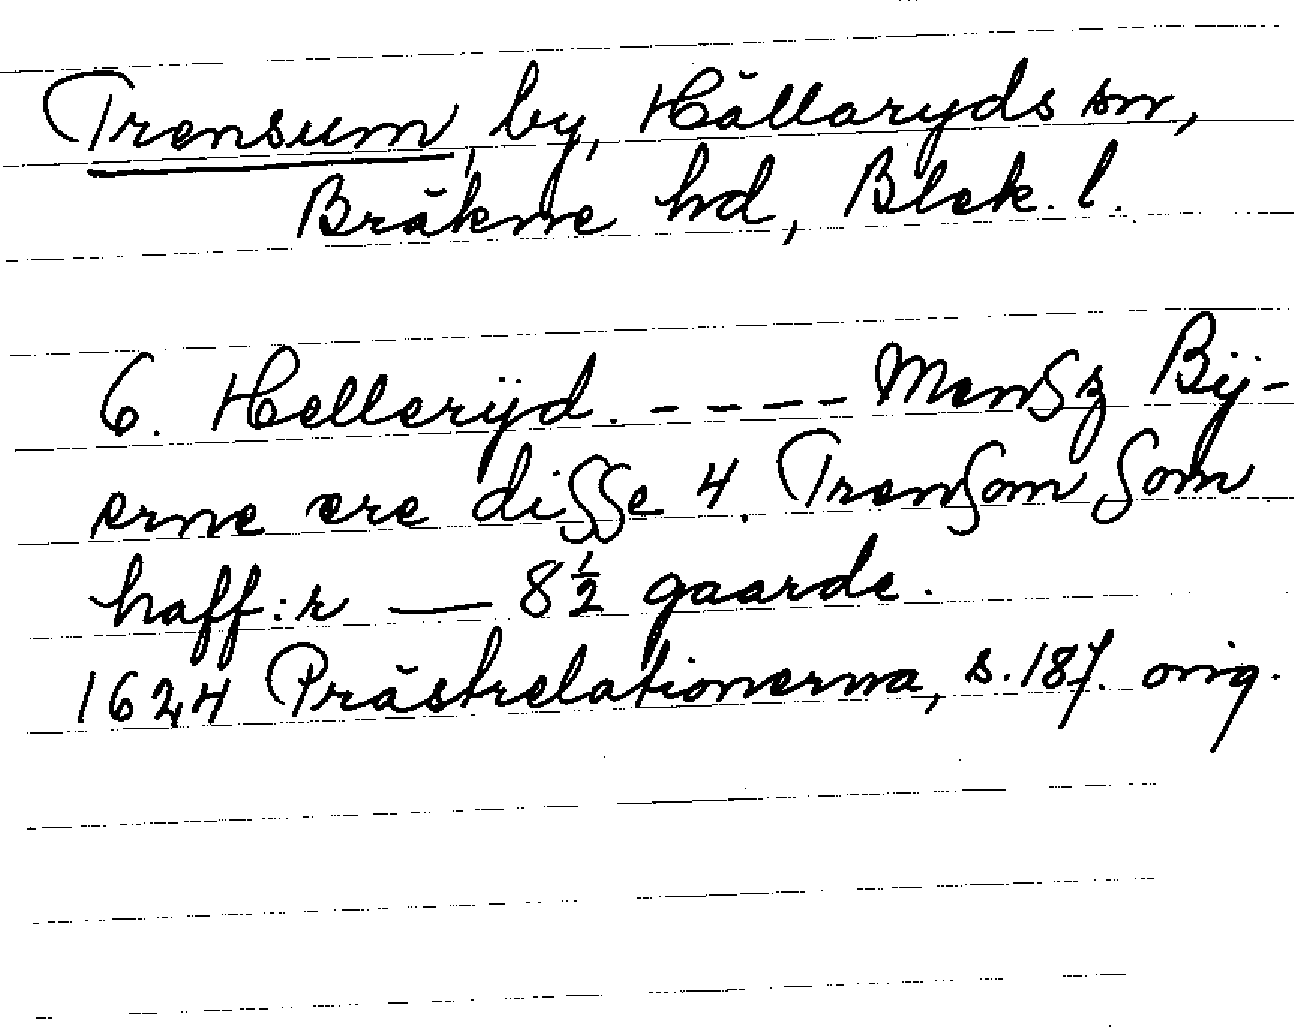 Trensum, by, Hällaryds sn,
Bräkne hd, Blek. l.
6. Hellerÿd. - - - - Mensz Bÿ-
erne ere disse 4. Trensom som
haff:r — 8½ gaarde.
1624 Prästrelationerna, s. 187. orig.